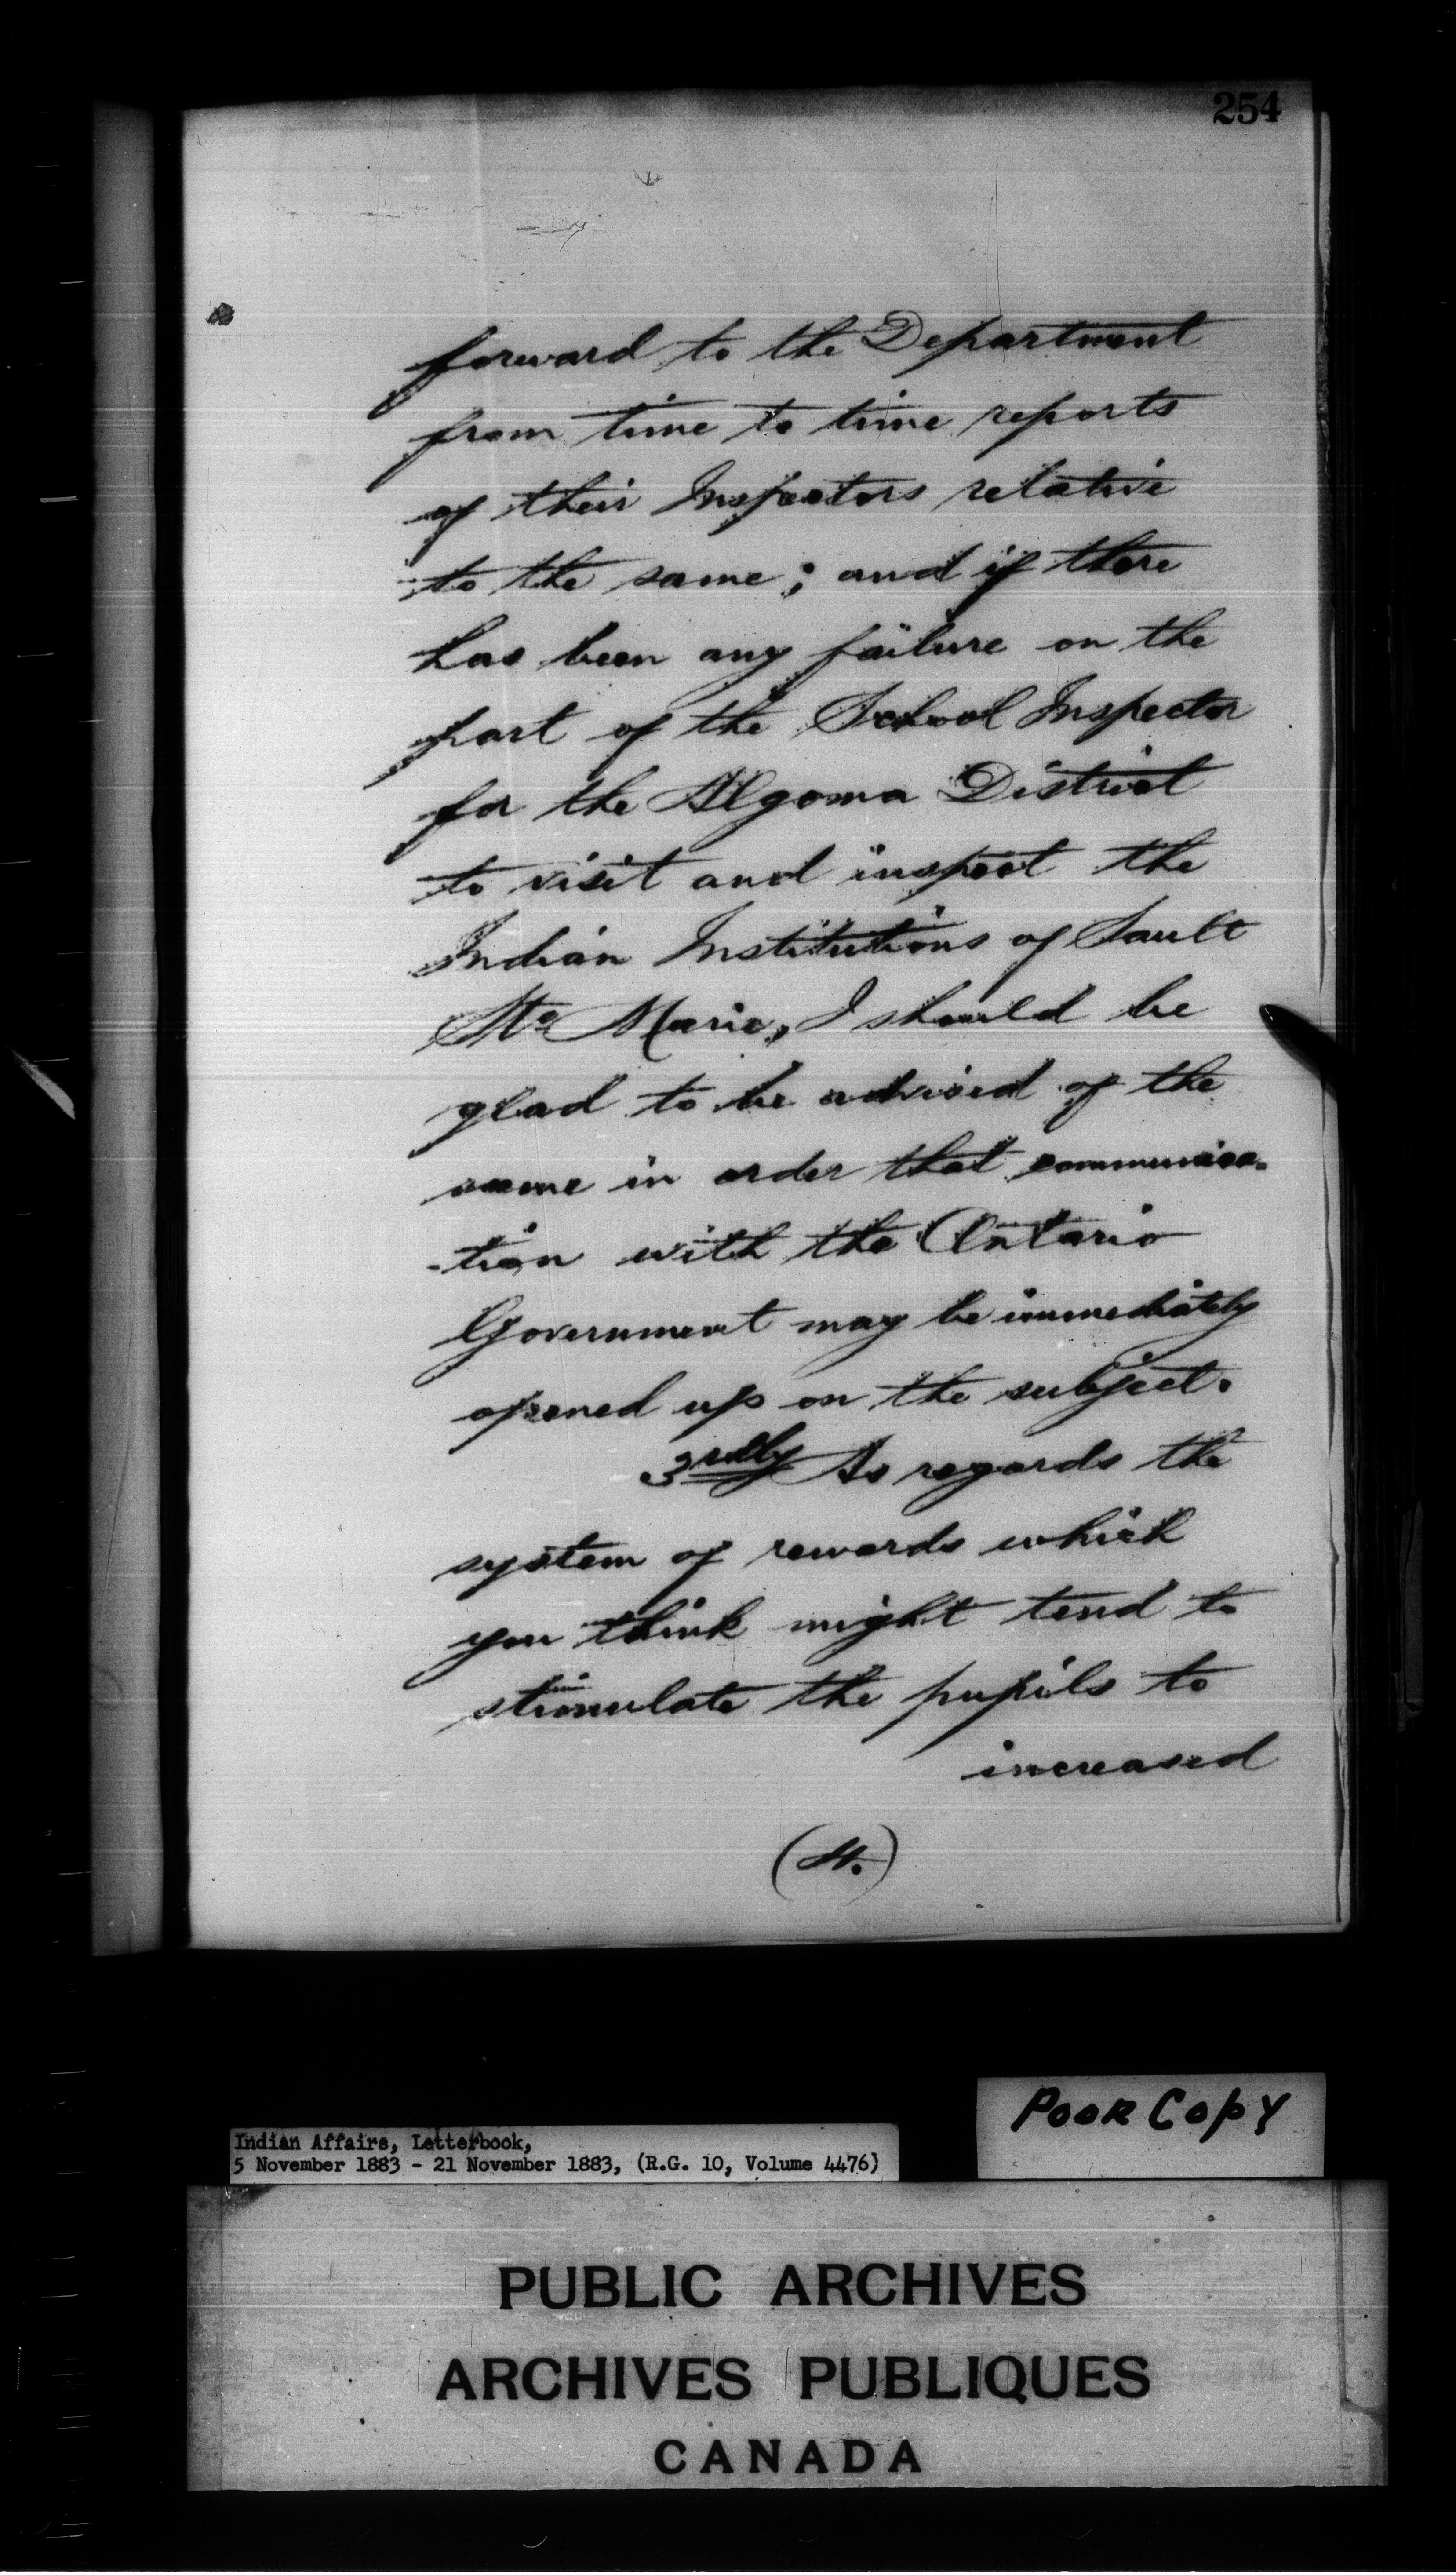 254
forward to the Department
from time to time reports
of their Inspectors relative
to the same; and if there
has been any failure on the
part of the School Inspector
for the Algoma District
to visit and inspect the
Indian Institutions of Sault
Ste Marie, I should be
glad to be advised of the
same in order that communica-
-tion with the Ontario
Government may be immediately
opened up on the subject.
3rdly As regards the
system of rewards which
you think might tend to
stimulate the pupils to
increased
(4.)
Poor Copy
Indian Affairs, Letterbook,
5 November 1883 - 21 November 1883, (R.G. 10, Volume 4476)
PUBLIC ARCHIVES
ARCHIVES PUBLIQUES
CANADA